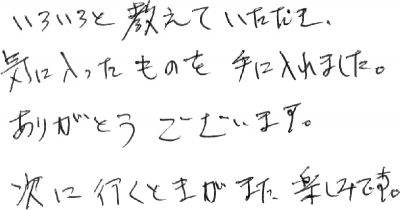 いろいろと教えていただき、
気に入ったものを手に入れました。
ありがとうございます。
次に行くときがまた楽しみです。